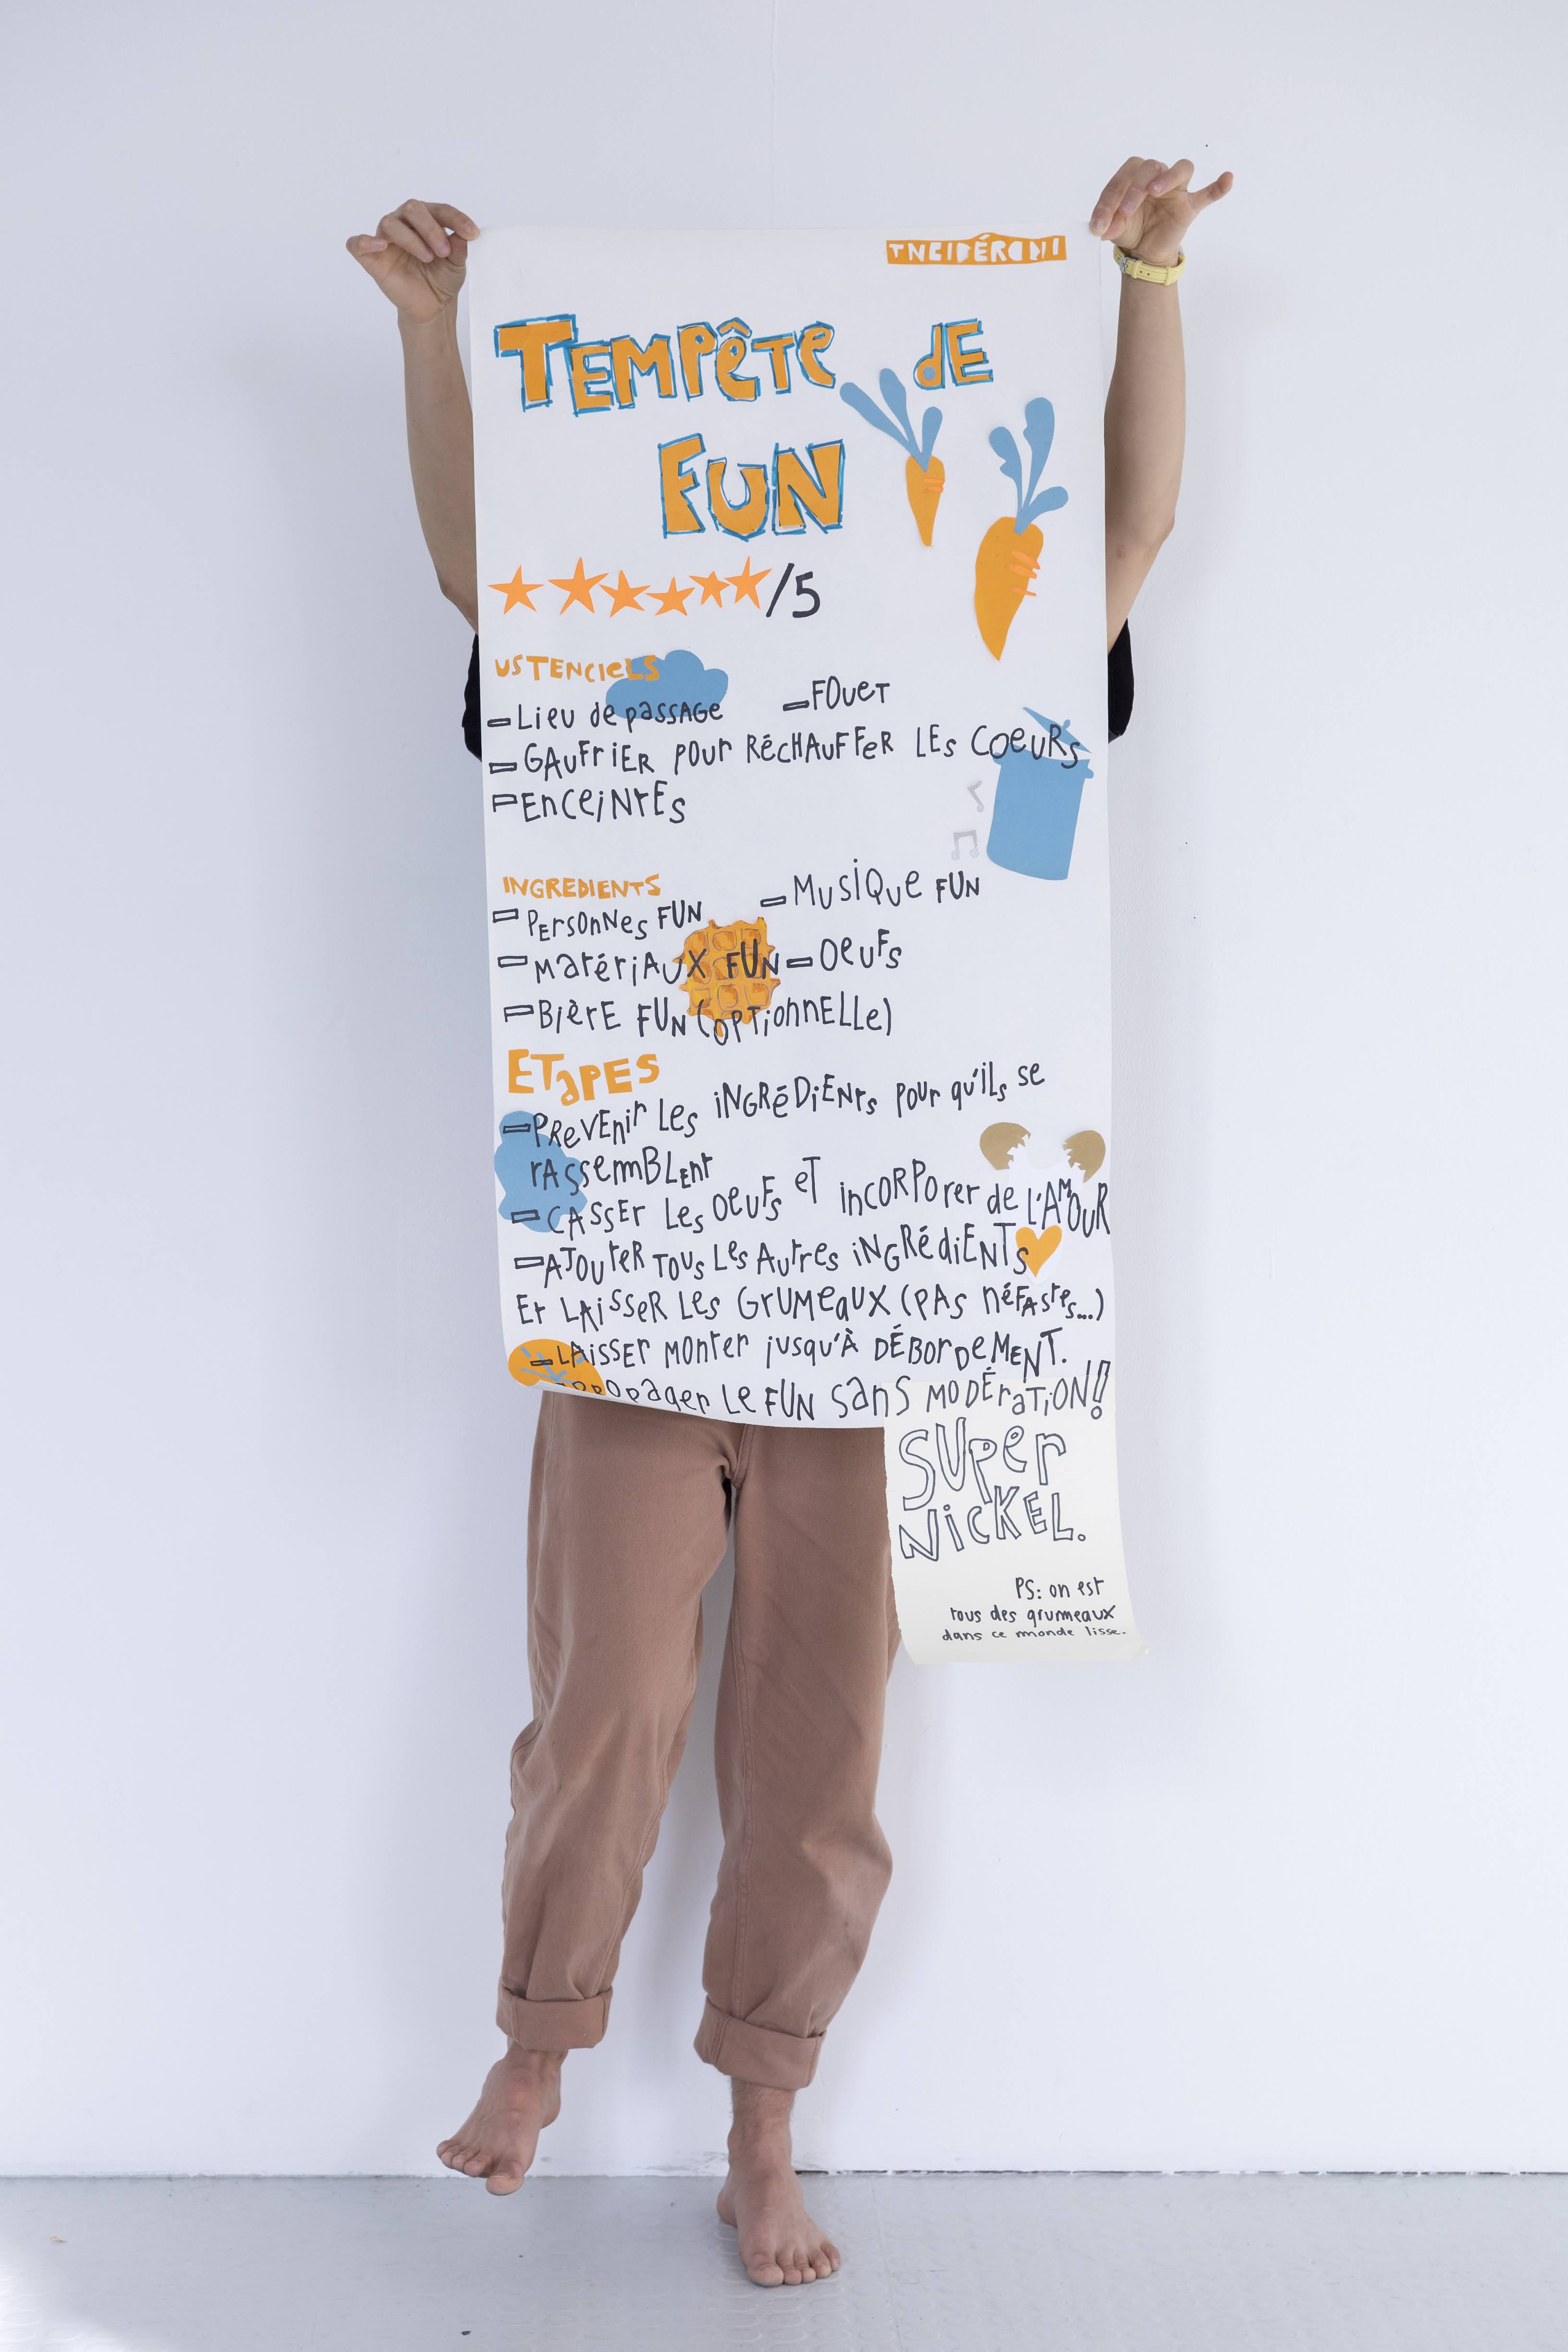 TEMPêTE dE
FUN
/5
USTENCIELS
-Lieu de passage -Fouet
-GAUFRIER pour RéCHAUFFER LES COEURS
-ENCEINTES
INGREDIENTS
-PERSONNES FUN -MUSIQUE FUN
-MATéRIAUX FUN -OEUFS
-BièRE FUN (OPTIONNELLE)
ETAPES
-PREVENIR LES INGRéDIENTS pour qu'ils se
RASSEMBLENT
-CASSER LES OEUFS ET INCORPORER de L'AMOUR
-AJOUTER TOUS LES AUTRES INGRÉDIENTS
ET LAISSER LES GRUMEAUX (PAS NÉFASTES...)
-LAISSER MONTER jusqu'À DÉBORDEMENT.
PROPAGER LE FUN SANS MODÉRATION!!
SUPER
NICKEL.
PS: on est
tous des grumeaux
dans ce monde lisse.